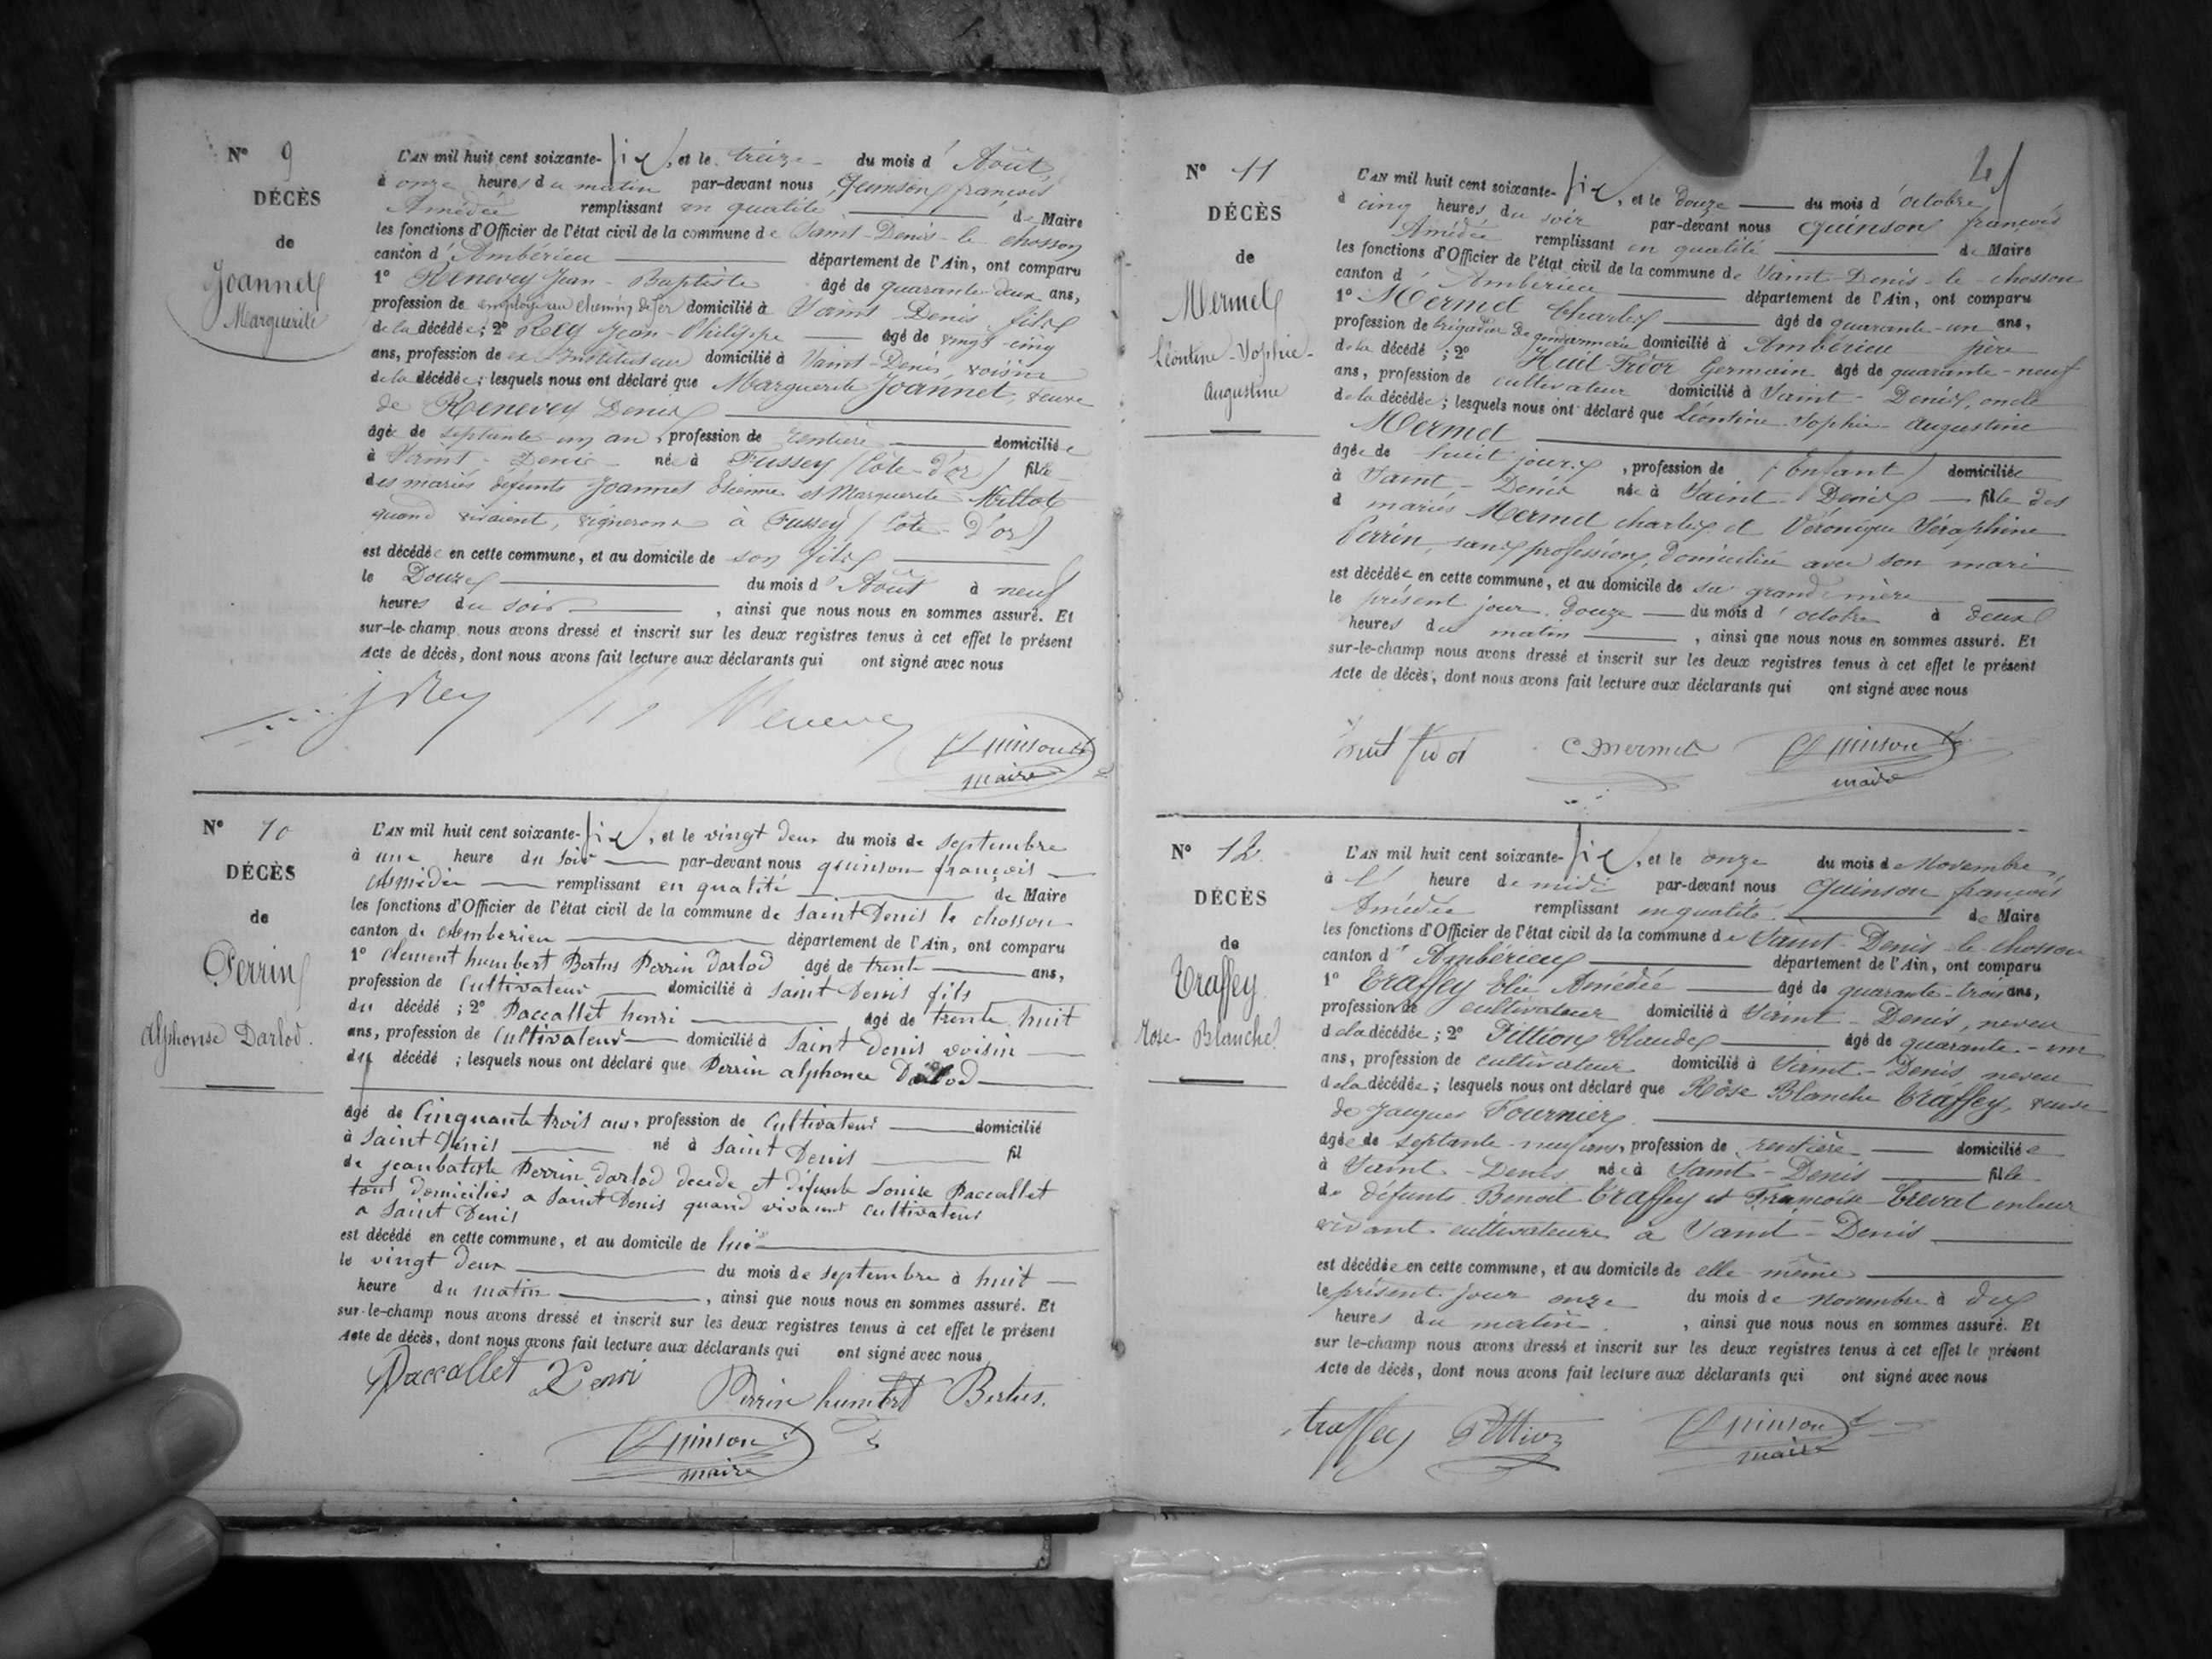 N° 9
DÉCÈS
de
Joannet
Marguerite
L'AN mil huit cent soixante-six, et le treize du mois d'Août
à onze heures du matin par-devant nous Quinson françois
Amédée remplissant en qualité de Maire
les fonctions d'Officier de l'état civil de la commune de Saint-Denis-le-chosson
canton d'Ambérieu département de l'Ain, ont comparu
1° Renevey Jean-Baptiste âgé de quarante-deux ans,
profession de employé au chemin de fer domicilié à Saint Denis fils
de la décédée; 2° Rey Jean-Philippe âgé de vingt-cinq
ans, profession de ex Instituteur domicilié à Saint-Denis, voisin
de la décédée; lesquels nous ont déclaré que Marguerite Joannet, veuve
de Renevey Denis
âgée de septante un an, profession de rentière domiciliée
à Saint-Denis née à Fussey (Côte-d'or) fille
des mariés défunts Joannet Etienne et Marguerite Millot
quand vivaient, vignerons à Fussey (Côte-D'or)
est décédée en cette commune, et au domicile de son fils
le Douze du mois d'Août à neuf
heures du soir, ainsi que nous nous en sommes assuré. Et
sur-le-champ nous avons dressé et inscrit sur les deux registres tenus à cet effet le présent
Acte de décès, dont nous avons fait lecture aux déclarants qui ont signé avec nous
j Rey Renevey
Quinson
maire
N° 10
DÉCÈS
de
Perrin
alphonse Darlod.
L'AN mil huit cent soixante-six, et le vingt deux du mois de septembre
à une heure du soir par-devant nous quinson françois
amédée remplissant en qualité de Maire
les fonctions d'Officier de l'état civil de la commune de Saint Denis le chosson
canton de amberieu département de l'Ain, ont comparu
1° Clement humbert Bertus Perrin darlod âgé de trente ans,
profession de Cultivateur domicilié à Saint Denis fils
du décédé; 2° Paccallet henri âgé de trente huit
ans, profession de Cultivateur domicilié à Saint Denis voisin
du décédé; lesquels nous ont déclaré que Perrin alphonse Darlod
âgé de Cinquante trois ans, profession de Cultivateur domicilié
à Saint Denis né à Saint Denis fil
de jeanbatiste Perrin darlod decede et défunte Louise Paccallet
tous domiciliés a Saint Denis quand vivaient Cultivateurs
a Saint Denis
est décédé en cette commune, et au domicile de lui
le vingt deux du mois de septembre à huit
heure du matin, ainsi que nous nous en sommes assuré. Et
sur-le-champ nous avons dressé et inscrit sur les deux registres tenus à cet effet le présent
Acte de décès, dont nous avons fait lecture aux déclarants qui ont signé avec nous
Paccallet Henri Perrin humbert Bertus.
Quinson
maire
N° 11
DÉCÈS
de
Mermet
Léontine-Sophie-
Augustine
L'AN mil huit cent soixante-six, et le douze du mois d'octobre
à cinq heures du soir par-devant nous Quinson françois
Amédée remplissant en qualité de Maire
les fonctions d'Officier de l'état civil de la commune de Saint-Denis-le-chosson
canton d'Ambérieu département de l'Ain, ont comparu
1° Mermet Charles âgé de quarante-un ans,
profession de brigadier de gendarmerie domicilié à Ambérieu père
de la décédé; 2° Germain âgé de quarante-neuf
ans, profession de cultivateur domicilié à Saint-Denis, oncle
de la décédée; lesquels nous ont déclaré que Léontine Sophie Augustine
Mermet
âgée de huit jours, profession de (Enfant) domiciliée
à Saint-Denis née à Saint-Denis fille des
d mariés Mermet charles et Véronique Séraphine
Perrin, sans profession, domiciliée avec son mari
est décédée en cette commune, et au domicile de sa grand mère
le présent jour douze du mois d'octobre à deux
heures du matin, ainsi que nous nous en sommes assuré. Et
sur-le-champ nous avons dressé et inscrit sur les deux registres tenus à cet effet le présent
Acte de décès, dont nous avons fait lecture aux déclarants qui ont signé avec nous
C Mermet Quinson
maire
N° 12.
DÉCÈS
de
Traffey
Rose-Blanche
L'AN mil huit cent soixante-six, et le onze du mois de Novembre,
à l' heure de midi par-devant nous Quinson françois
Amédée remplissant en qualité de Maire
les fonctions d'Officier de l'état civil de la commune de Saint-Denis-le-chosson
canton d'Ambérieu département de l'Ain, ont comparu
1° Traffey Elie Amédée âgé de quarante-trois ans,
profession de cultivateur domicilié à Saint-Denis, neveu
de la décédée; 2° Pittion Claude âgé de quarante-un
ans, profession de cultivateur domicilié à Saint-Denis neveu
de la décédée; lesquels nous ont déclaré que Rose Blanche Traffey, veuve
de Jacques Fournier
âgée de septante-neuf ans, profession de rentière domiciliée
à Saint-Denis née à Saint-Denis fille
de défunts Benoit Traffey et Françoise Trevat en leur
vivant cultivateurs à Saint-Denis
est décédée en cette commune, et au domicile de elle-même
le présent jour onze du mois de novembre à dix
heures du matin, ainsi que nous nous en sommes assuré. Et
sur le-champ nous avons dressé et inscrit sur les deux registres tenus à cet effet le présent
Acte de décès, dont nous avons fait lecture aux déclarants qui ont signé avec nous
traffey Pittion Quinson
maire